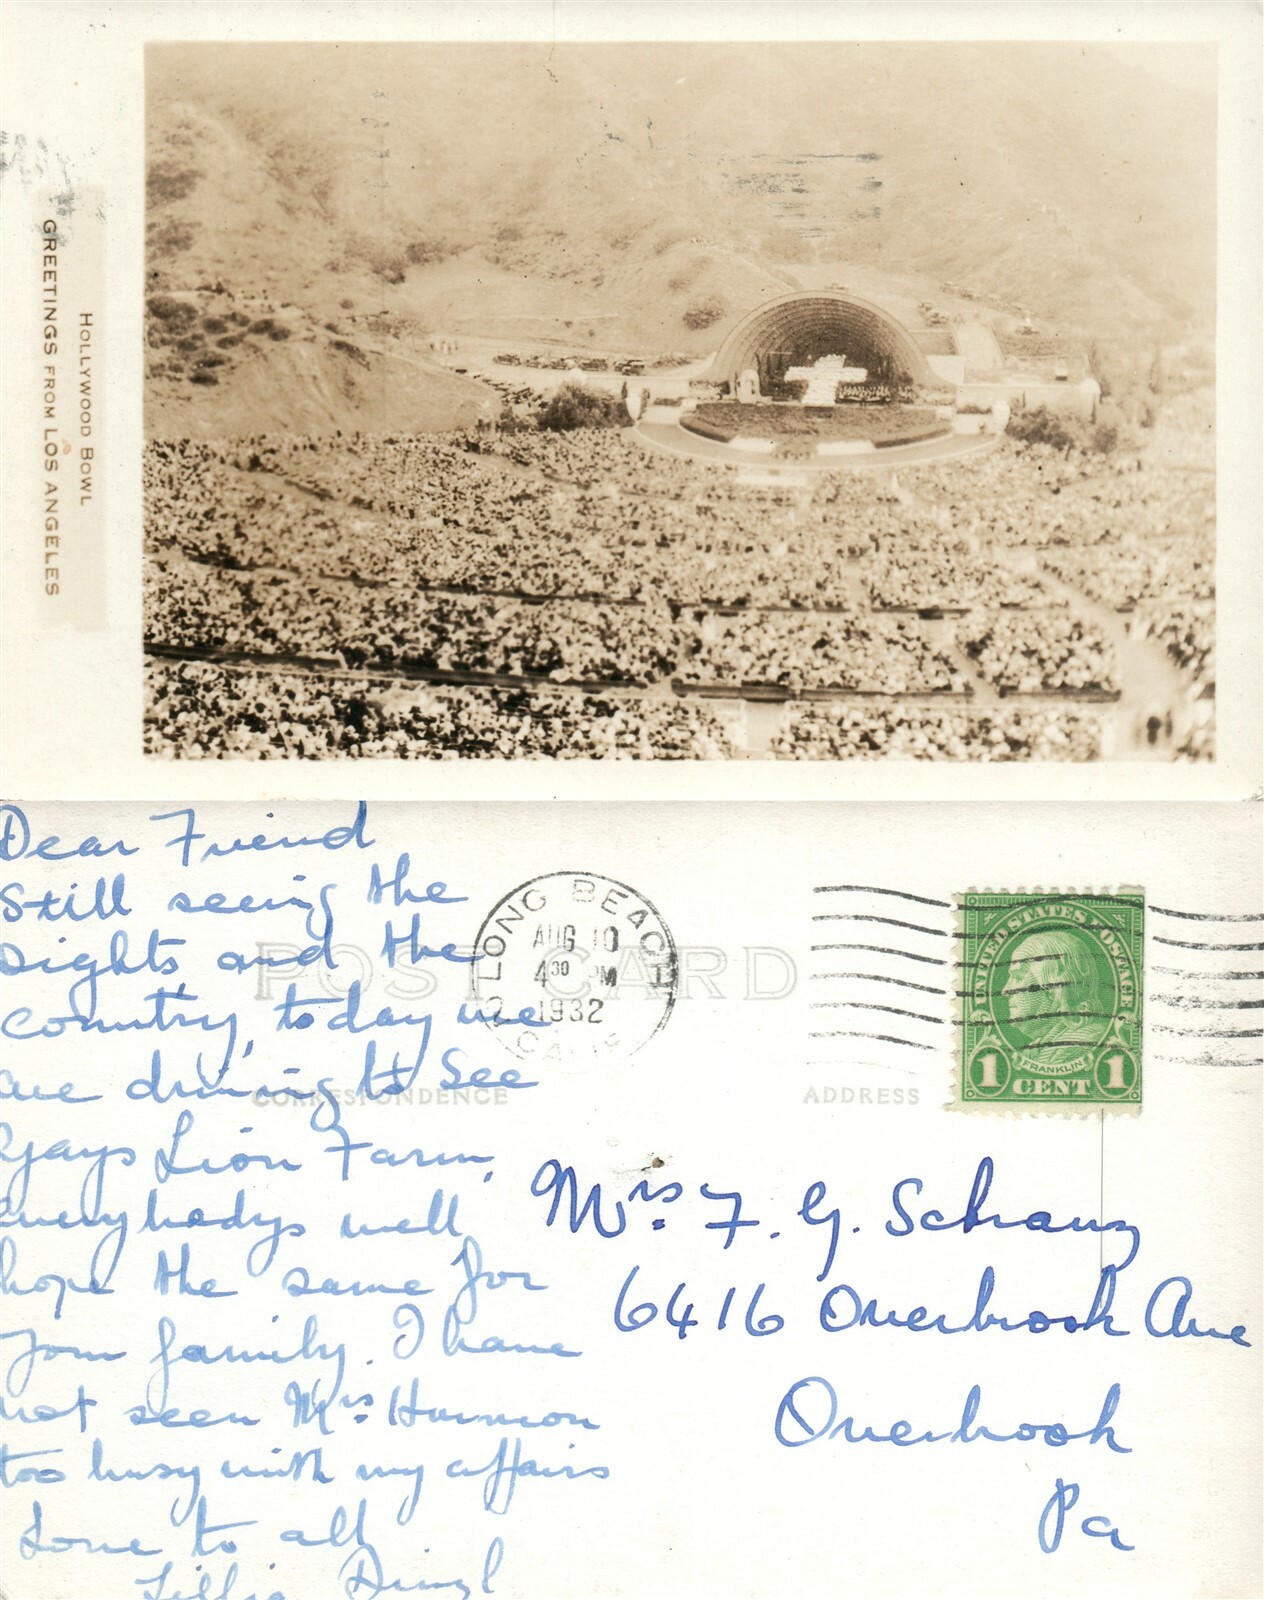 HOLLYWOOD BOWL
GREETINGS FROM LOS ANGELES
Dear Friend
Still seeing the
sights and the
country, today we
are driving to See
Gays Lion Farm,
everybodys well
hope the same for
your family. I have
not seen Mrs. Harmon
too busy with my affairs
Love to all
Lillie
POST CARD
CORRESPONDENCE
ADDRESS
LONG BEACH
AUG 10
4 30 PM
1932
CALIF
UNITED STATES POSTAGE
FRANKLIN
1 CENT 1
Mrs. F. G. Schranz
6416 Overbrook Ave
Overbrook
Pa